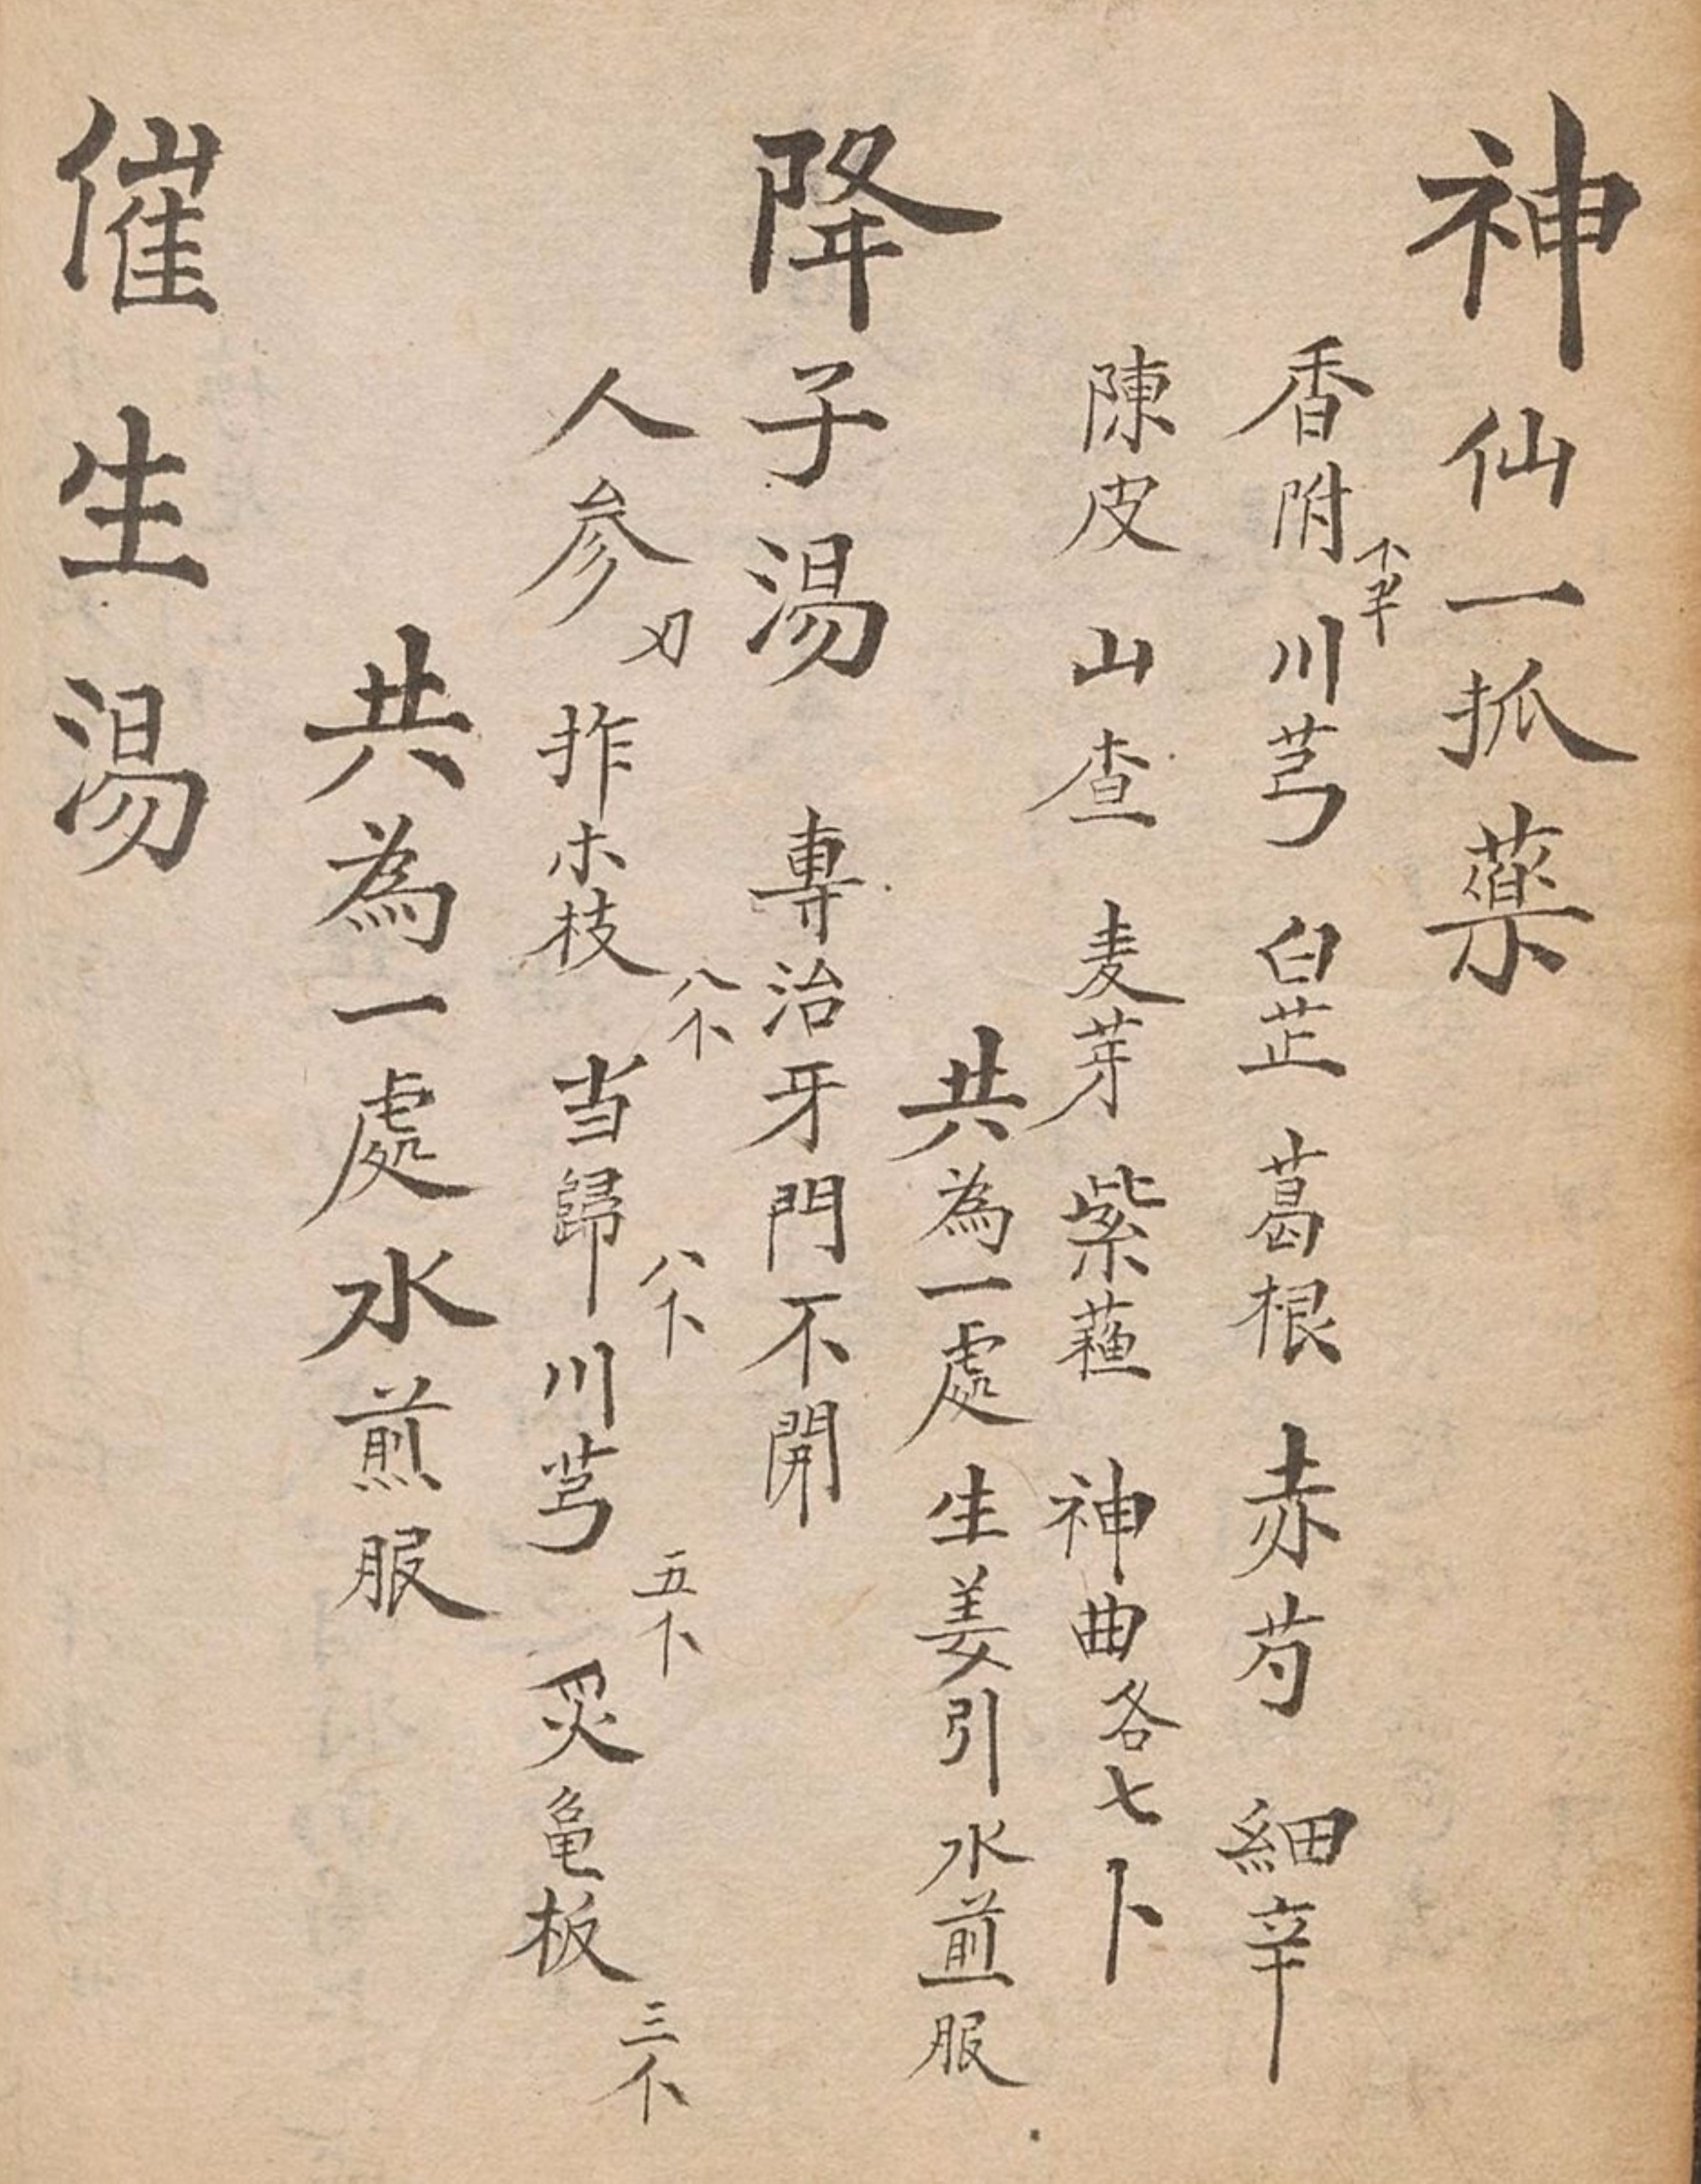 神仙一抓藥
香附 川芎 白芷 葛根 赤芍 細辛
陳皮 山查 麦芽 紫蘓 神曲各七卜
共為一處生姜引水煎服
降子湯 專治牙門不開
人参 拃木枝八个 当歸八卜 川芎五卜 炙亀板三个
共為一處水煎服
催生湯